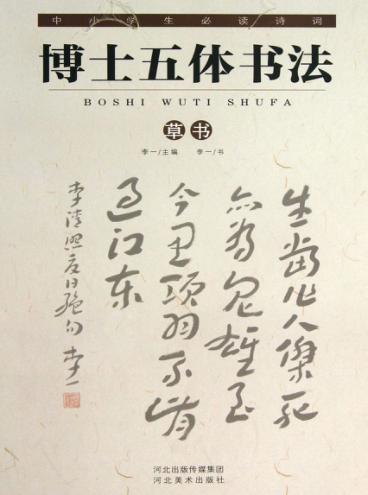 中小学生必读诗词
博士五体书法
BOSHI WUTI SHUFA
草书
李一/主编 李一/书
生当作人傑死
亦为鬼雄至
今思项羽不肯
过江东
李清照夏日绝句 李一
河北出版传媒集团
河北美术出版社